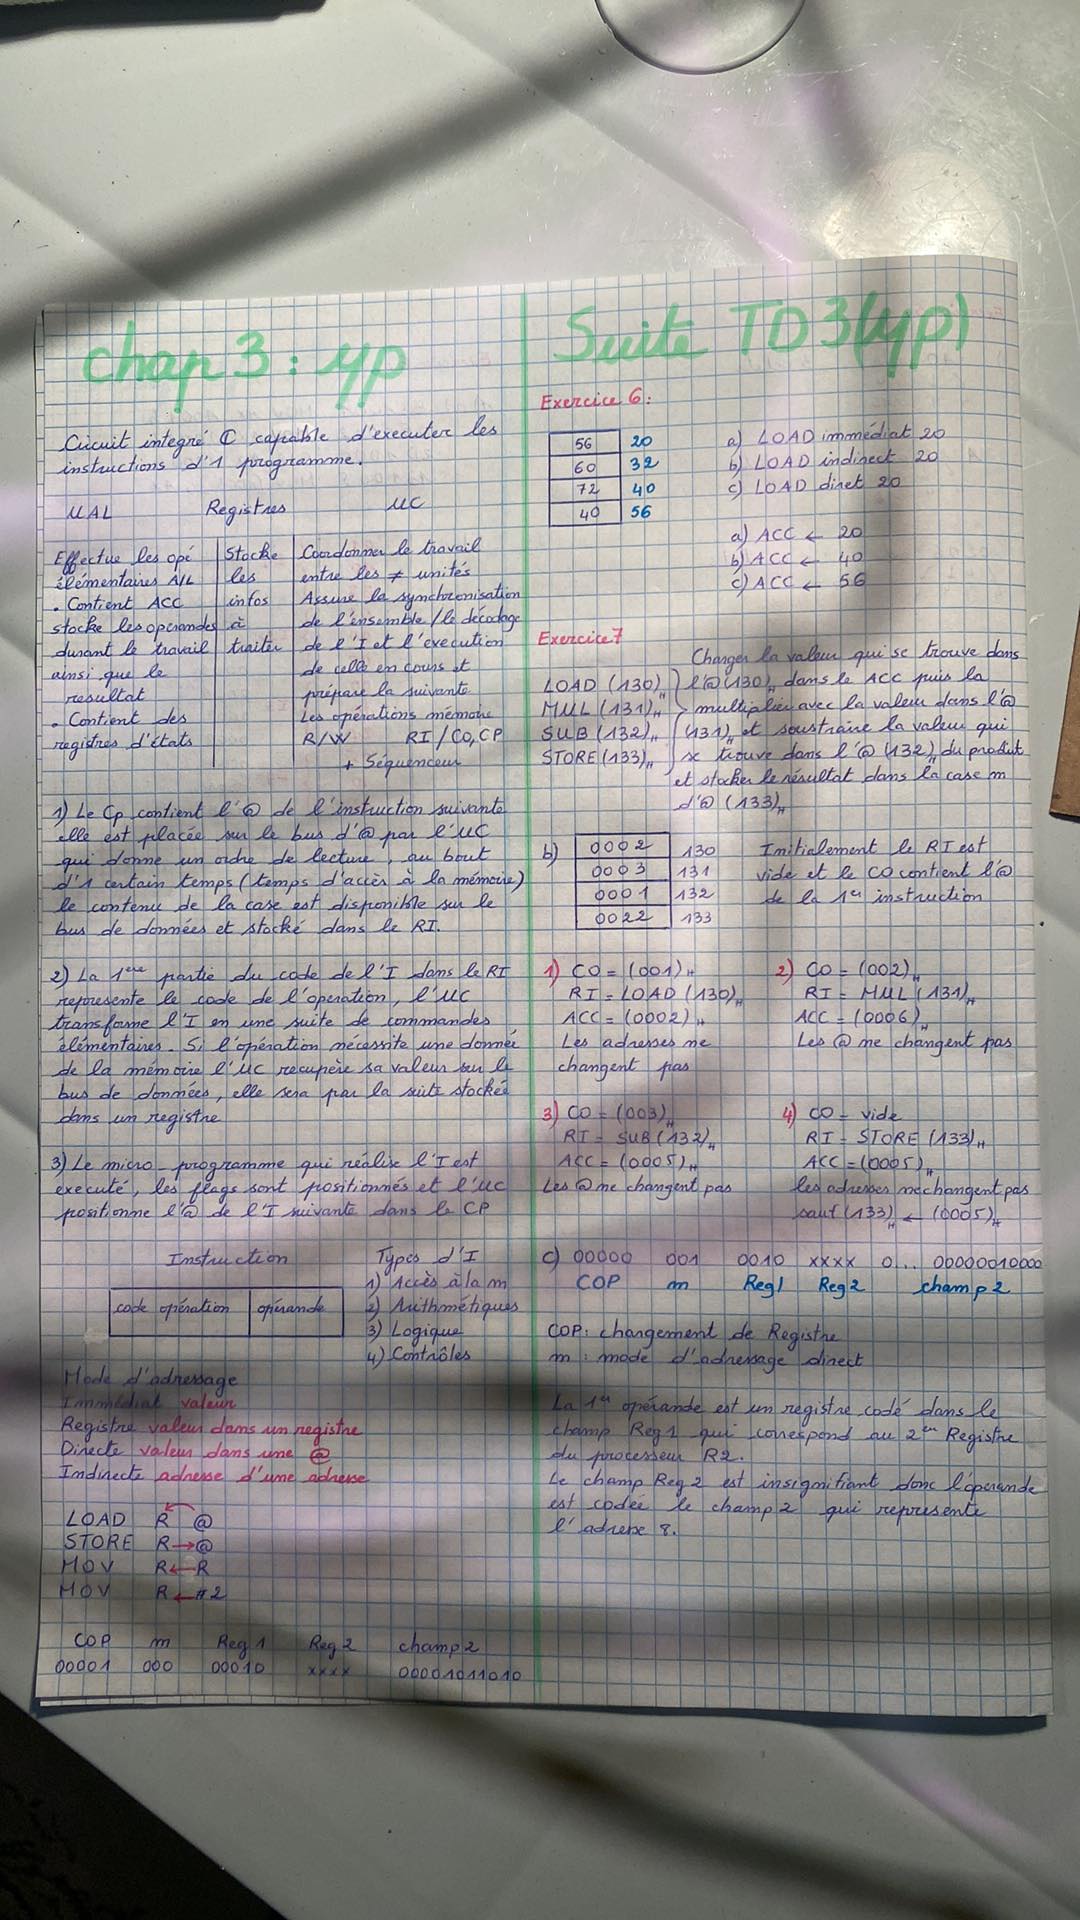 chap 3 : yp
Circuit integré C capable d'executer les
instructions d'1 programme.
UAL Registres UC
Effectue les opé
élémentaires A/L
. Contient ACC
stocke les operandes
durant le travail
ainsi que le
resultat
. Contient des
registres d'états
Stocke
les
infos
à
traiter
Coordonner le travail
entre les ≠ unités
Assure la synchronisation
de l'ensemble / le décodage
de l'I et l'execution
de celle en cours et
prépare la suivante
Les opérations mémoire
R/W RI / CO, CP
+ Séquenceur
1) Le Cp contient l'@ de l'instruction suivante
elle est placée sur le bus d'@ par l'UC
qui donne un ordre de lecture, au bout
d'1 certain temps (temps d'accès à la mémoire)
le contenu de la case est disponible sur le
bus de données et stocké dans le RI.
2) La 1ère partie du code de l'I dans le RI
represente le code de l'operation, l'UC
transforme l'I en une suite de commandes
élémentaires. Si l'opération nécessite une donnée
de la mémoire l'UC recupère sa valeur sur le
bus de données, elle sera par la suite stockée
dans un registre
3) Le micro-programme qui réalise l'I est
éxecuté, les flags sont positionnés et l'UC
positionne l'@ de l'I suivante dans le CP
Instruction
code opération opérande
Types d'I
1) Accès à la m
2) Arithmétiques
3) Logique
4) Contrôles
Mode d'adressage
Immédiat valeur
Registre valeur dans un registre
Directe valeur dans une @
Indirecte adresse d'une adresse
LOAD R @
STORE R → @
MOV R ← R
MOV R ← #2
COP m Reg 1 Reg 2 champ 2
00001 000 00010 xxxx 00001011010
Suite TD3(yp)
Exercice 6 :
56 20
60 32
72 40
40 56
a) LOAD immédiat 20
b) LOAD indirect 20
c) LOAD diret 20
a) ACC ← 20
b) ACC ← 40
c) ACC ← 56
Exercice 7
LOAD (130)H
MUL (131)H
SUB (132)H
STORE (133)H
Charger la valeur qui se trouve dans
l'@ (130)H dans le ACC puis la
multiplier avec la valeur dans l'@
(131)H et soustraire la valeur qui
se trouve dans l'@ (132)H du produit
et stocker le résultat dans la case m
d'@ (133)H
b)
0002 130
0003 131
0001 132
0022 133
Initialement le RI est
vide et le CO contient l'@
de la 1er instruction
1) CO = (001)H
RI = LOAD (130)H
ACC = (0002)H
Les adresses ne
changent pas
2) CO = (002)H
RI = MUL (131)H
ACC = (0006)H
Les @ ne changent pas
3) CO = (003)H
RI = SUB (132)H
ACC = (0005)H
Les @ ne changent pas
4) CO = vide
RI = STORE (133)H
ACC = (0005)H
les adresses ne changent pas
sauf (133)H ← (0005)H
c) 00000 001 0010 xxxx 0... 00000010000
COP m Reg1 Reg2 champ 2
COP : chargement de Registre
m : mode d'adressage direct
La 1er opérande est un registre codé dans le
champ Reg 1 qui correspond au 2em Registre
du processeur R2.
Le champ Reg 2 est insignifiant donc l'operande
est codée le champ 2 qui represente
l'adresse 8.